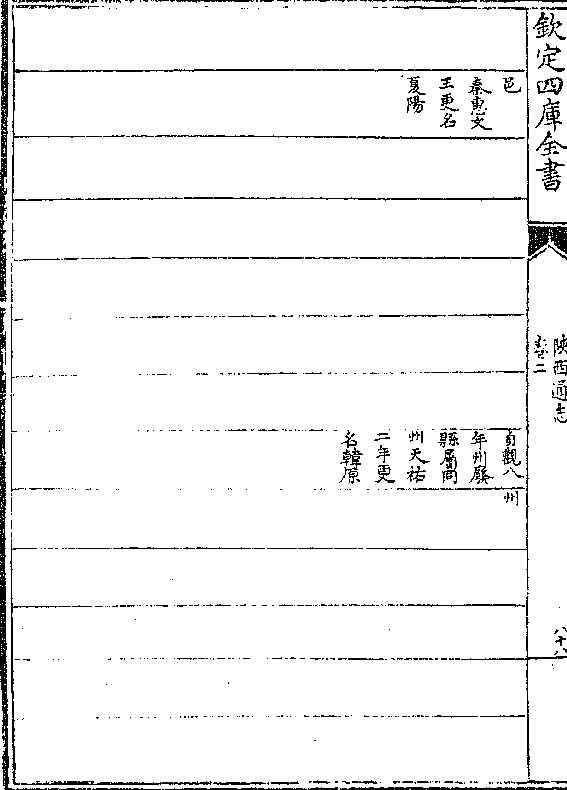 欽定四庫全書
陝西通志
卷二
八十八
邑
秦惠文
王更名
夏陽
貞觀八
年州廢
縣屬同
州天祐
二年更
名韓原
州